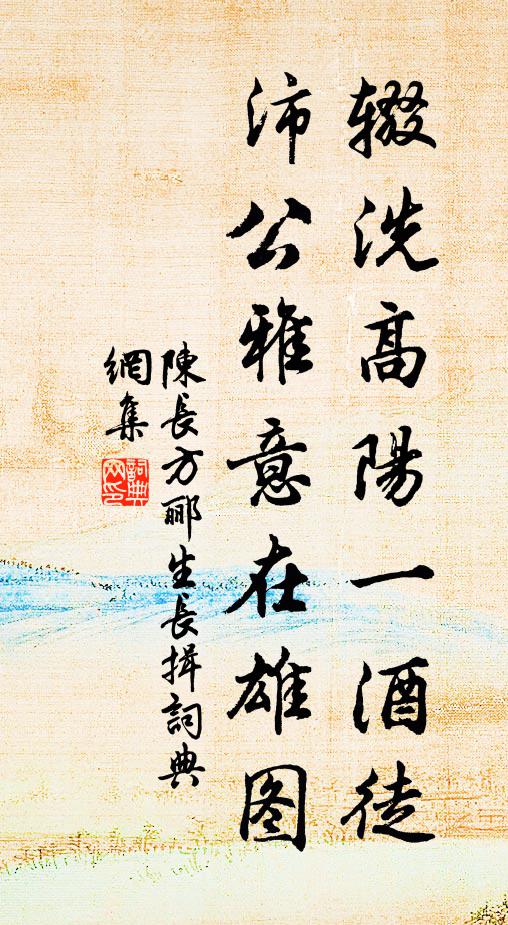 辍洗高陽一酒徒
沛公雅意在雄图
陳長方郦生長揖詞典
網集
詞典
网印